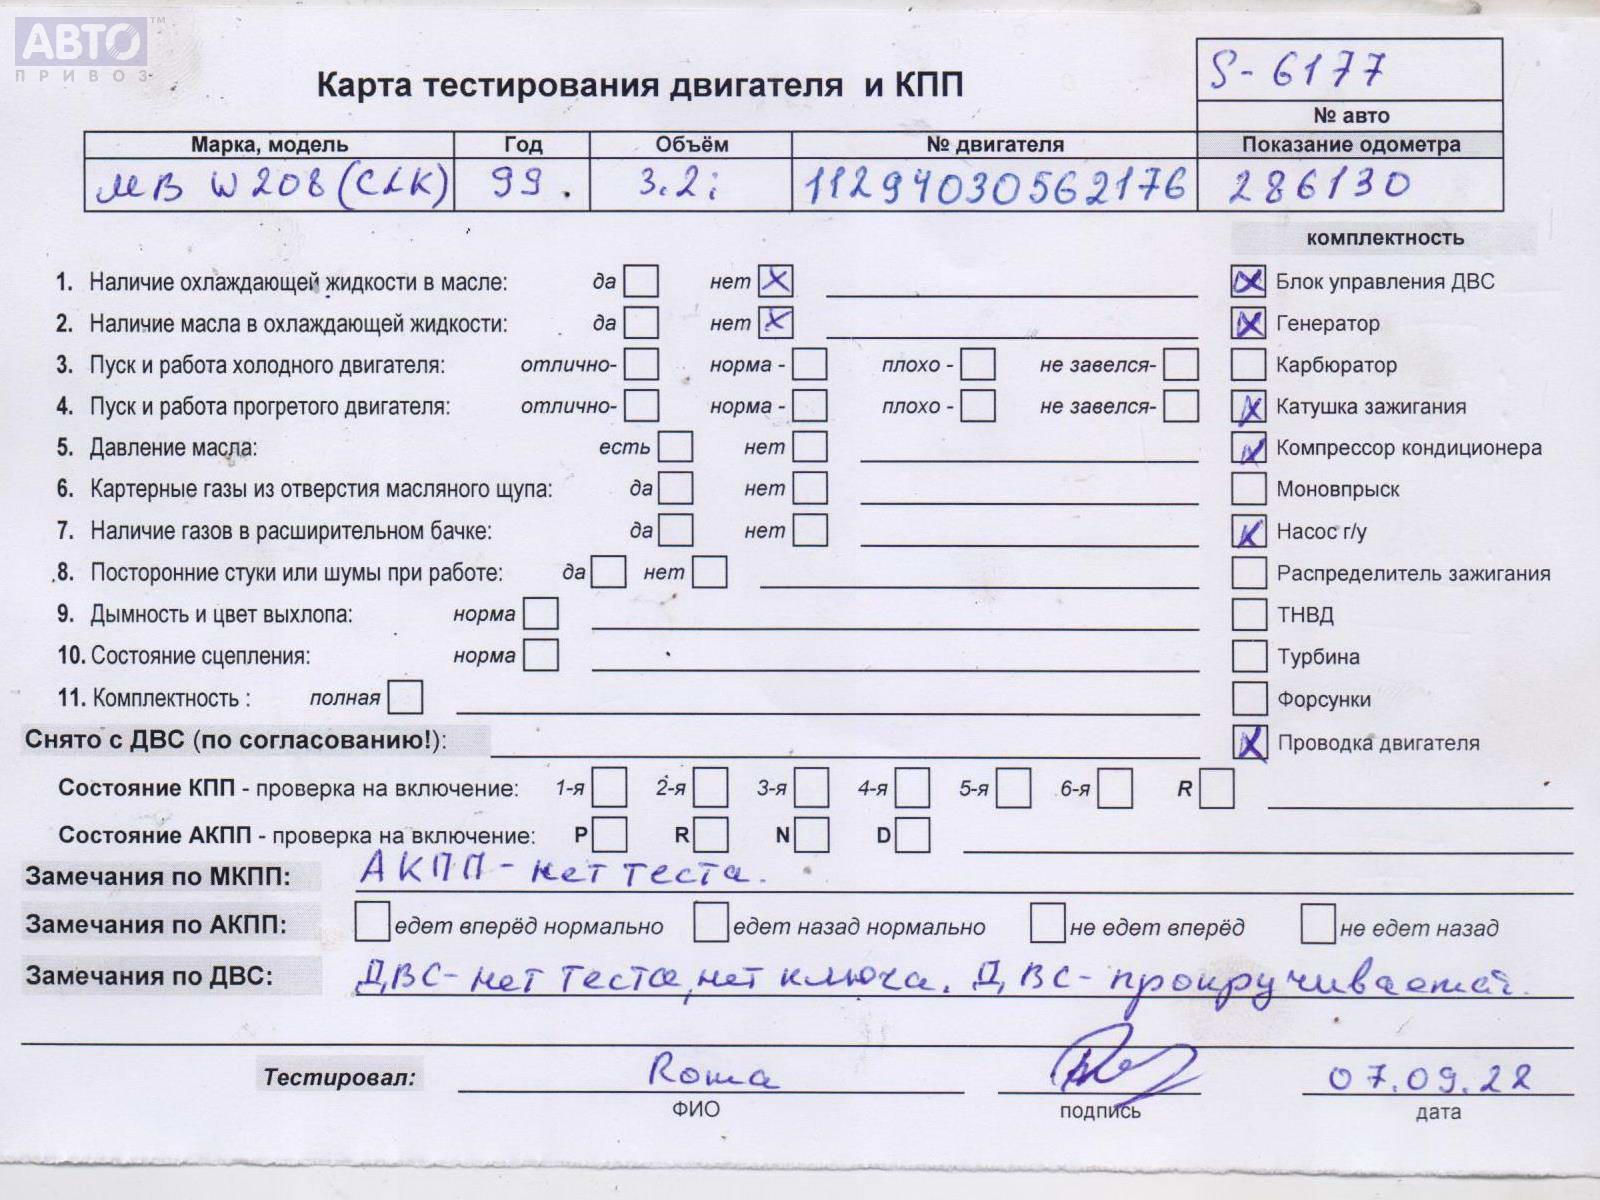 АВТО™
ПРИВОЗ
Карта тестирования двигателя и КПП
S-6177
№ авто
Марка, модель Год Объём № двигателя Показание одометра
МВ W208 (CLK) 99. 3.2i 11294030562176 286130
комплектность
1. Наличие охлаждающей жидкости в масле: да нет X
Блок управления ДВС
2. Наличие масла в охлаждающей жидкости: да нет X
Генератор
3. Пуск и работа холодного двигателя: отлично- норма - плохо - не завелся-
Карбюратор
4. Пуск и работа прогретого двигателя: отлично- норма - плохо - не завелся-
Катушка зажигания
5. Давление масла: есть нет
Компрессор кондиционера
6. Картерные газы из отверстия масляного щупа: да нет
Моновпрыск
7. Наличие газов в расширительном бачке: да нет
Насос г/у
8. Посторонние стуки или шумы при работе: да нет
Распределитель зажигания
9. Дымность и цвет выхлопа: норма
ТНВД
10. Состояние сцепления: норма
Турбина
11. Комплектность : полная
Форсунки
Снято с ДВС (по согласованию!):
Проводка двигателя
Состояние КПП - проверка на включение: 1-я 2-я 3-я 4-я 5-я 6-я R
Состояние АКПП - проверка на включение: P R N D
Замечания по МКПП: АКПП - нет теста.
Замечания по АКПП: едет вперёд нормально едет назад нормально не едет вперёд не едет назад
Замечания по ДВС: ДВС - нет теста, нет ключа. ДВС - прокручивается.
Тестировал: Рома 07.09.22
ФИО подпись дата